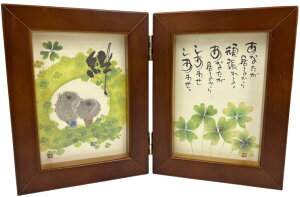 絆
あなたが
居るから
頑張れる。
あなたが
居るから
しあわせ
しあわせ。